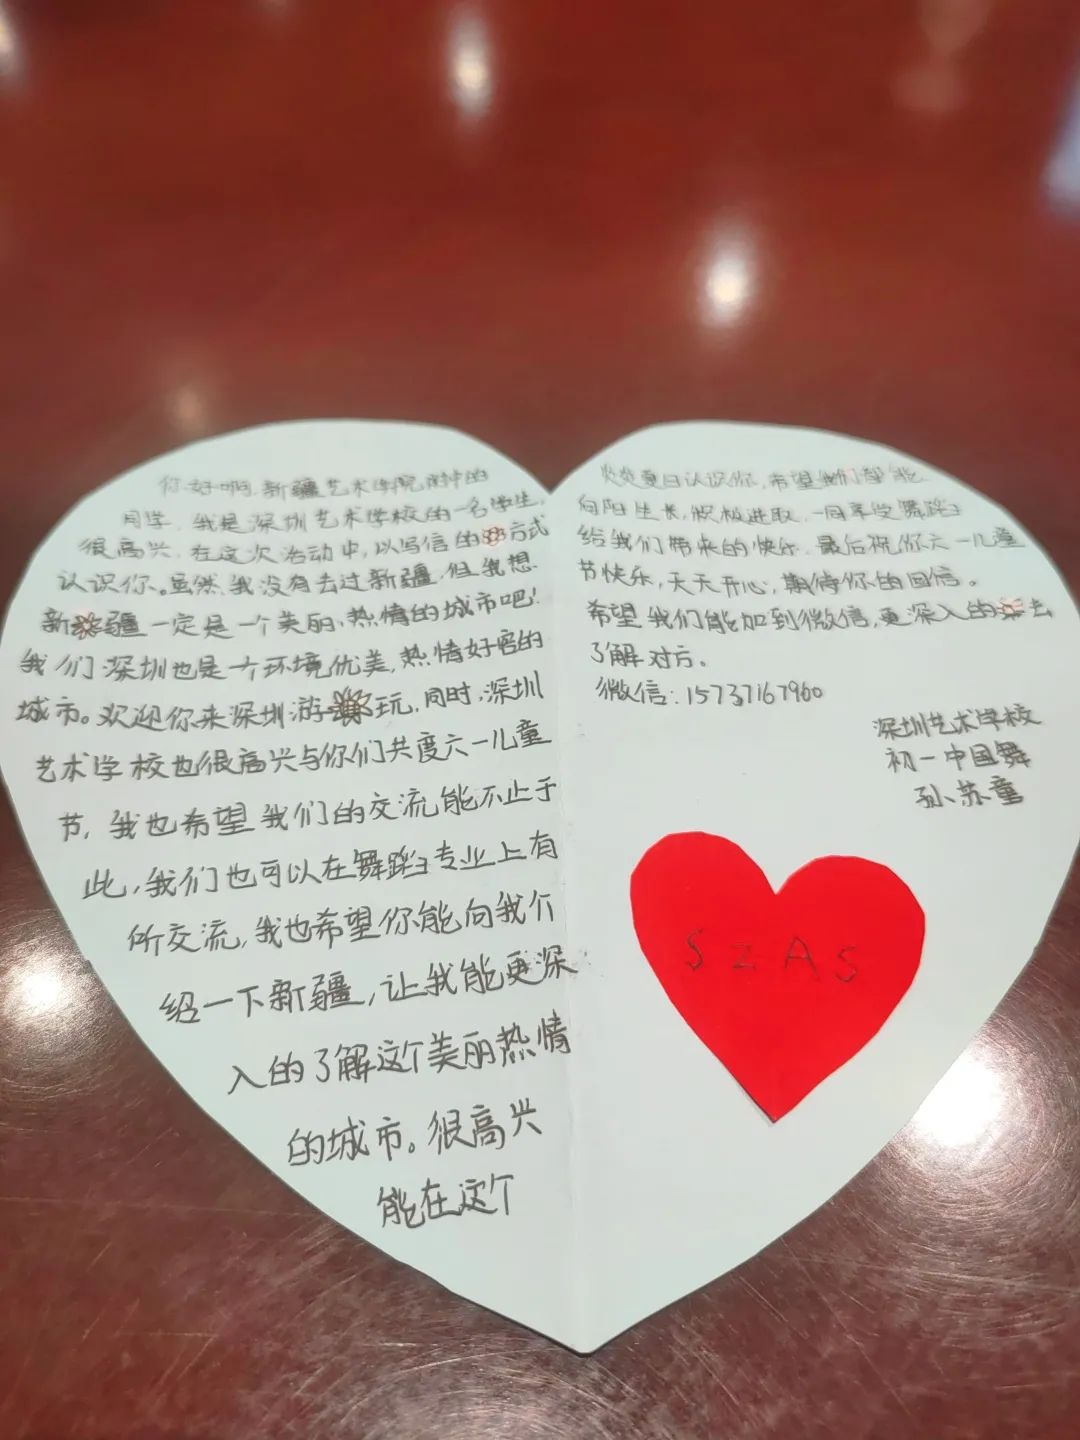 你好啊,新疆艺术学院附中的
同学,我是深圳艺术学校的一名学生,
很高兴,在这次活动中,以写信的方式
认识你。虽然,我没有去过新疆,但我想
新疆一定是一个美丽、热情的城市吧!
我们深圳也是一个环境优美,热情好客的
城市。欢迎你来深圳游玩,同时,深圳
艺术学校也很高兴与你们共度六一儿童
节,我也希望我们的交流能不止于
此,我们也可以在舞蹈专业上有
所交流,我也希望你能向我介
绍一下新疆,让我能更深
入的了解这个美丽热情
的城市。很高兴
能在这个
炎炎夏日认识你,希望我们都能
向阳生长,积极进取,一同享受舞蹈
给我们带来的快乐,最后祝你六一儿童
节快乐,天天开心,期待你的回信。
希望我们能加到微信,更深入的去
了解对方。
微信:15737167960
深圳艺术学校
初一中国舞
孙苏童
SZAS